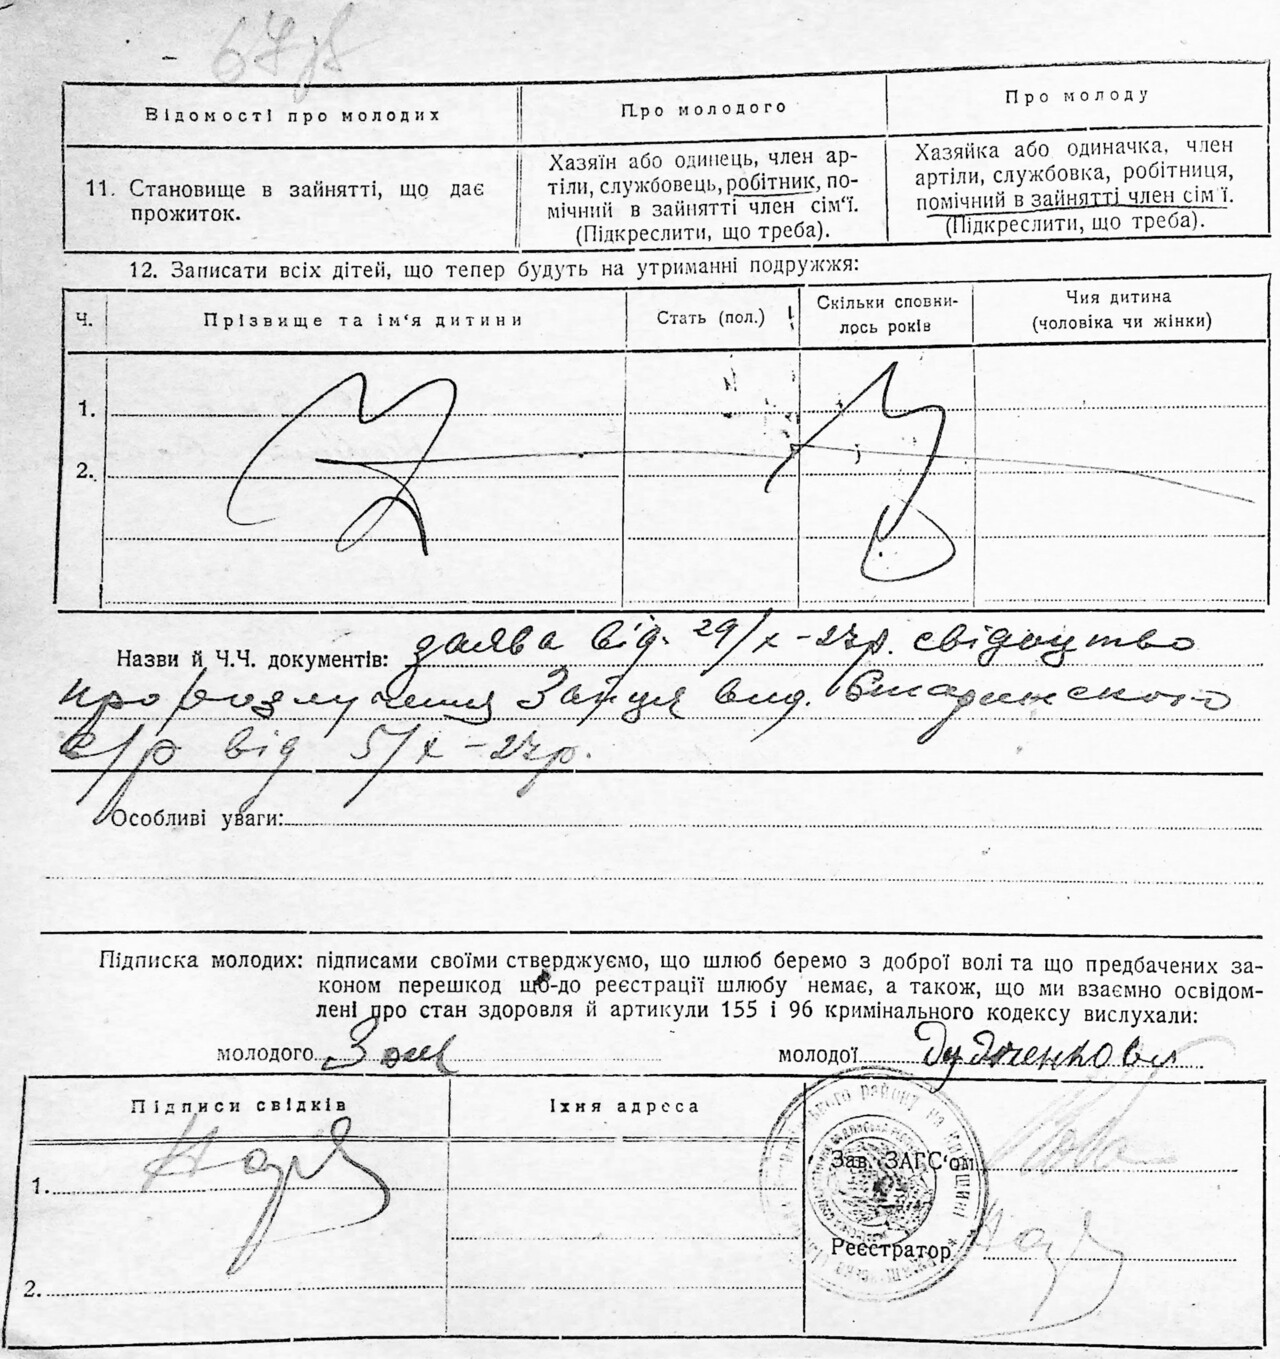 67зв
Відомості про молодих
Про молодого
Про молоду
11. Становище в зайнятті, що дає
прожиток.
Хазяїн або одинець, член ар-
тіли, службовець, робітник, по-
мічний в зайнятті член сім'ї.
(Підкреслити, що треба).
Хазяйка або одиначка, член
артіли, службовка, робітниця,
помічний в зайнятті член сім'ї.
(Підкреслити, що треба).
12. Записати всіх дітей, що тепер будуть на утриманні подружжя:
Ч.
Прізвище та ім'я дитини
Стать (пол.)
Скільки сповни-
лось років
Чия дитина
(чоловіка чи жінки)
1.
2.
Назви й Ч.Ч. документів: заява від. 29/X-27р. свідоцтво
про розлучення Зайця вид.
с/р від 5/X-27р.
Особливі уваги:
Підписка молодих: підписами своїми стверджуємо, що шлюб беремо з доброї волі та що предбачених за-
коном перешкод що-до реєстрації шлюбу немає, а також, що ми взаємно освідом-
лені про стан здоровля й артикули 155 і 96 кримінального кодексу вислухали:
молодого
молодої
Підписи свідків
Їхня адреса
1.
2.
Зав. ЗАГС'ом
Реєстратор